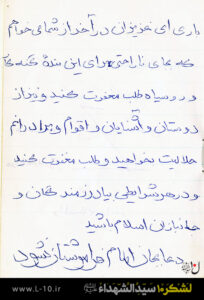 باری ای عزیزان در آخر از شما می‌خواهم
که مرا
برای این بنده گنه کار
و رو سیاه طلب مغفرت کنید و نیز از
دوستان و آشنایان و اقوام و برادرانم
حلالیت بخواهید و طلب مغفرت کنید
و در هر شرایطی یار رزمندگان و
جانبازان اسلام باشید
دعا بجان امام فراموشتان نشود
www.L-10.ir
لشکر۱۰سیدالشهداء